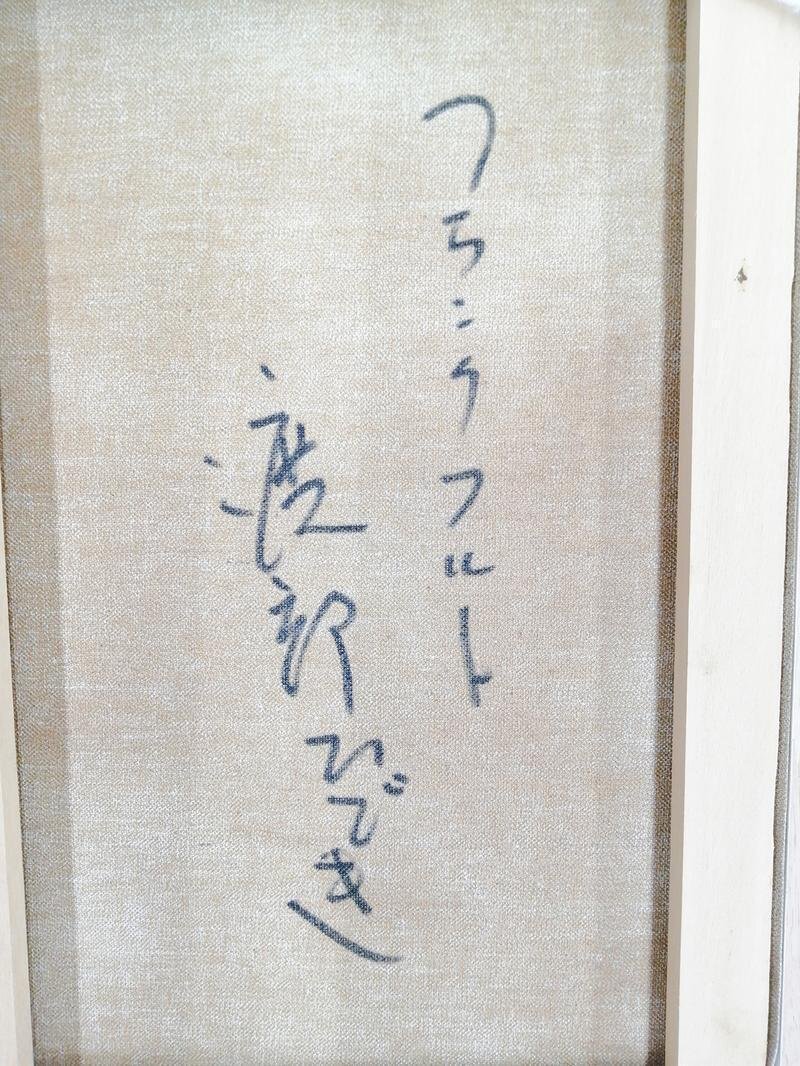 フランクフルト
渡部ひでき